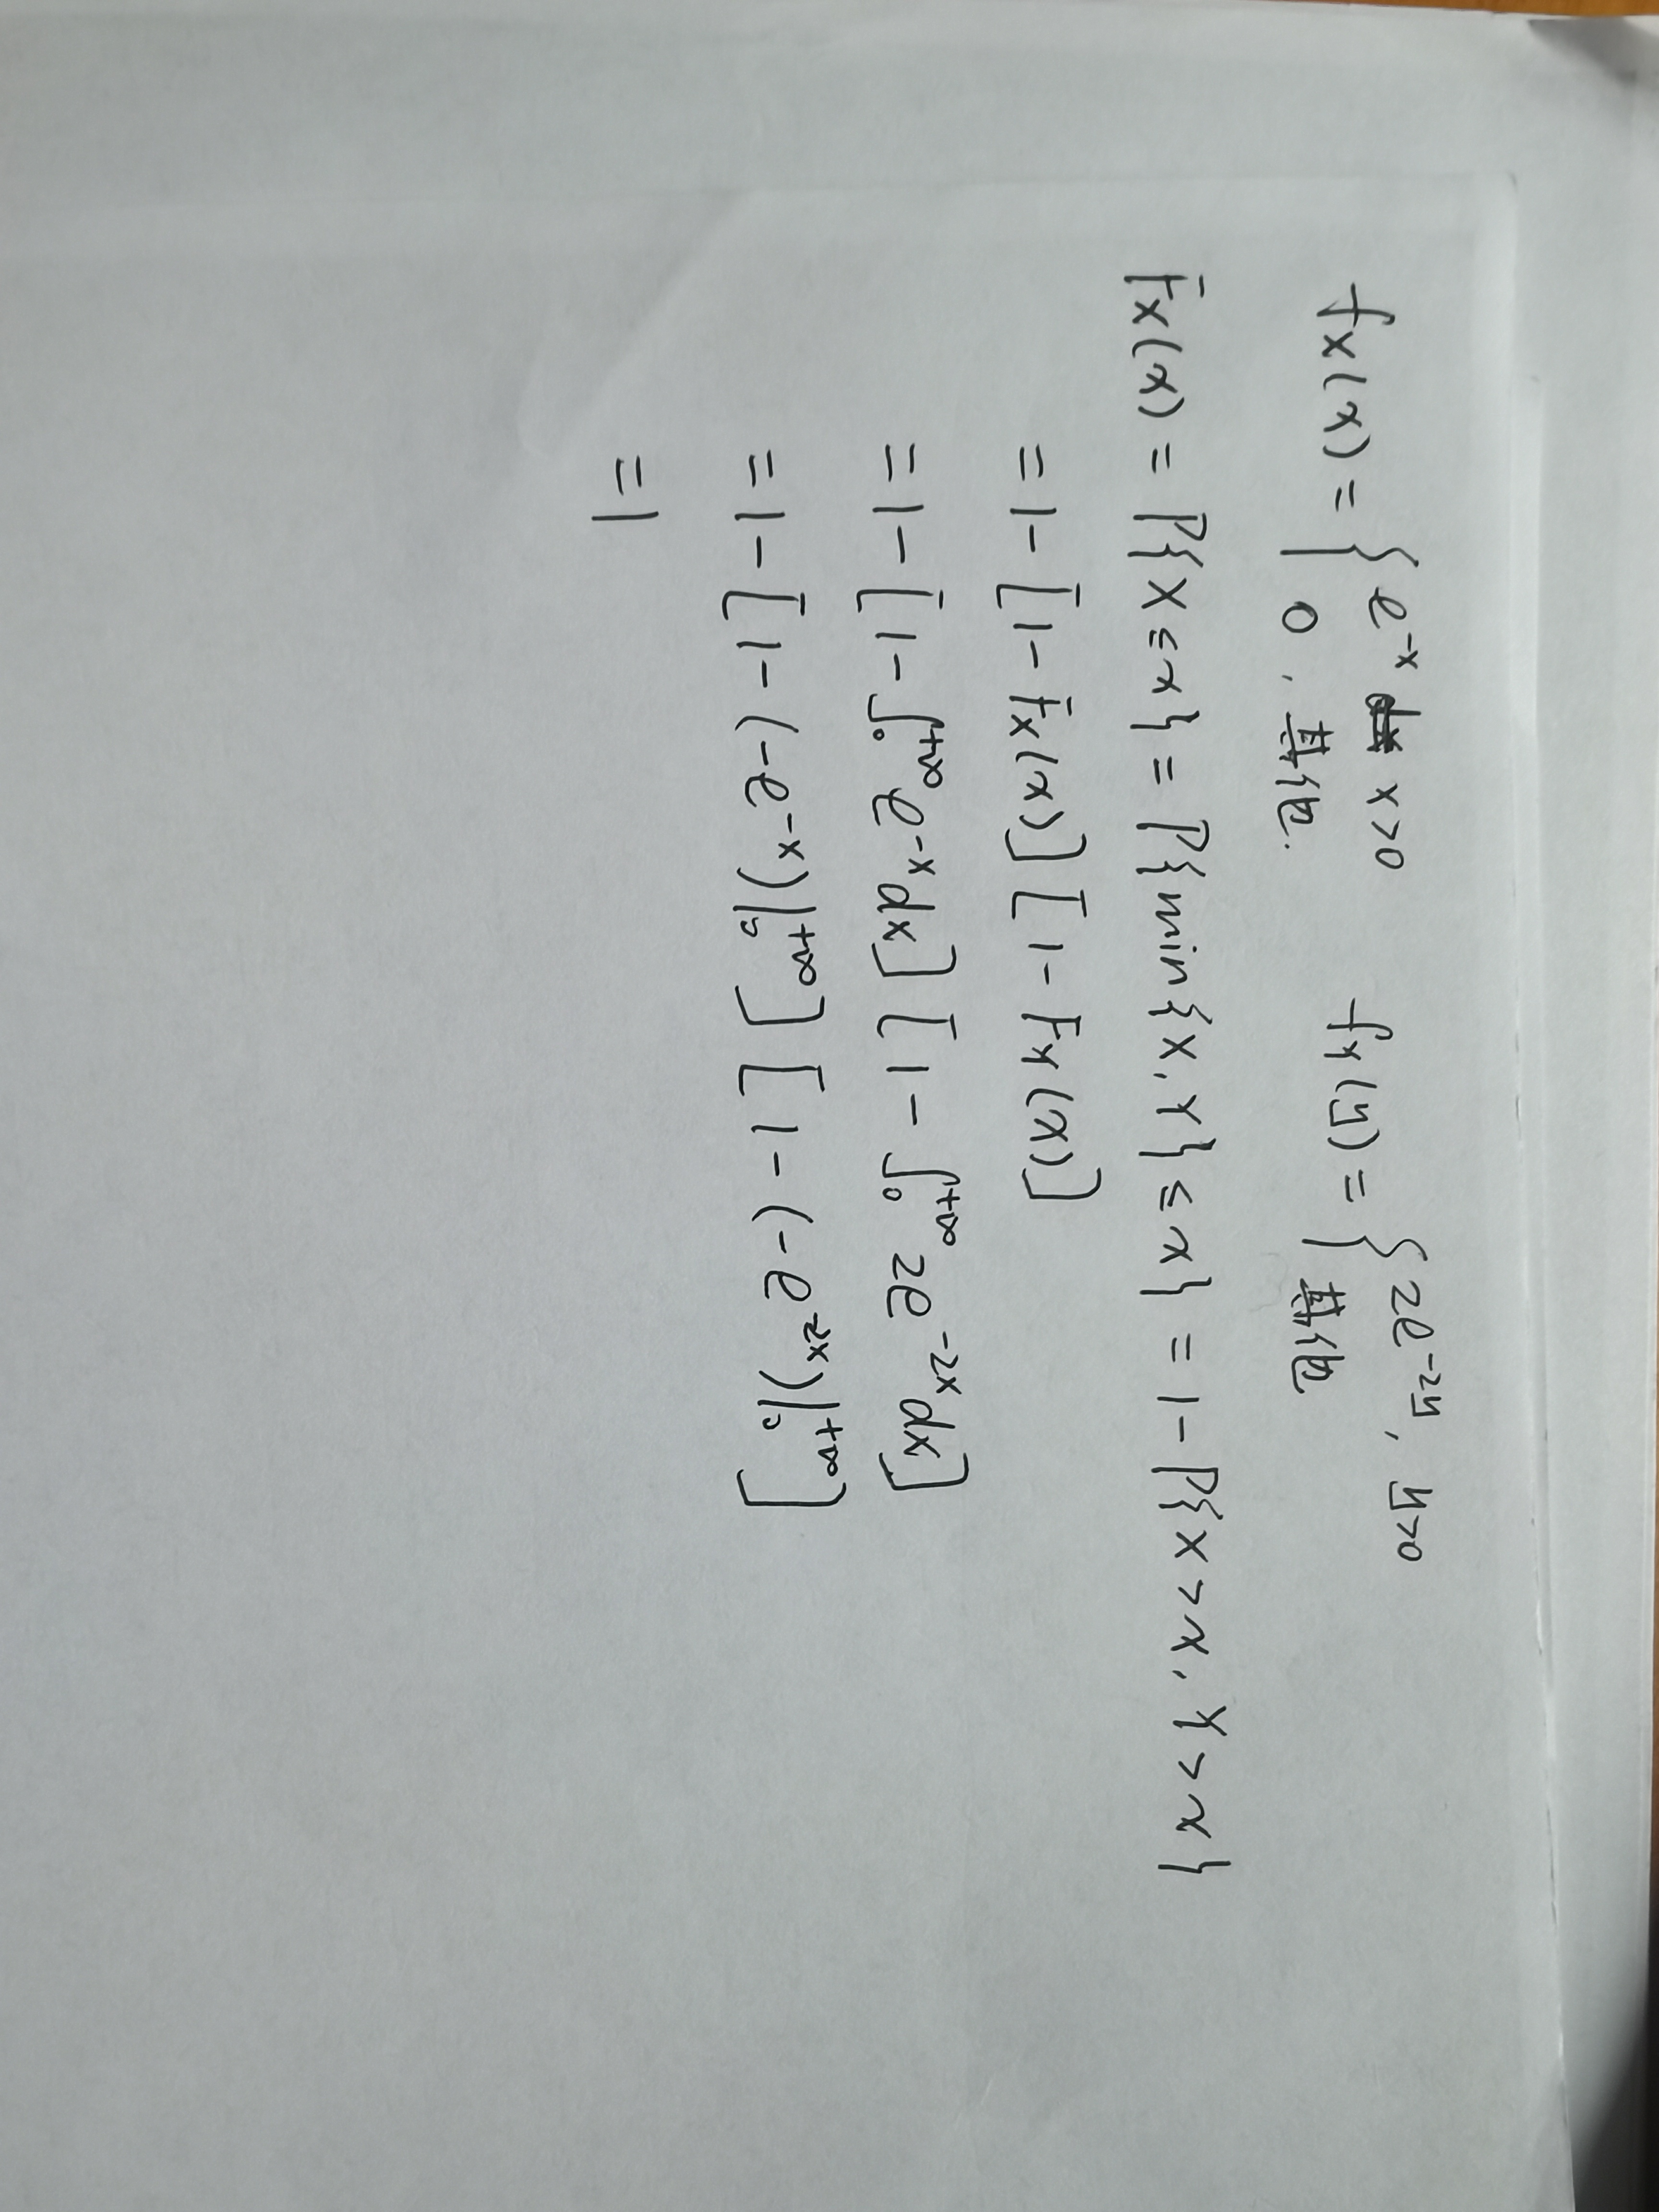 fX(x) = { e^-x x>0 fY(y) = { 2e^-2y, y>0
0, 其他. 其他
FX(x) = P{X≤x} = P{min{X,Y}≤x} = 1-P{X>x,Y>x}
= 1-[1-FX(x)][1-FY(x)]
= 1-[1-∫₀^+∞ e^-x dx][1-∫₀^+∞ 2e^-2x dx]
= 1-[1-(-e^-x)|₀^+∞][1-(-e^-2x)|₀^+∞]
= 1